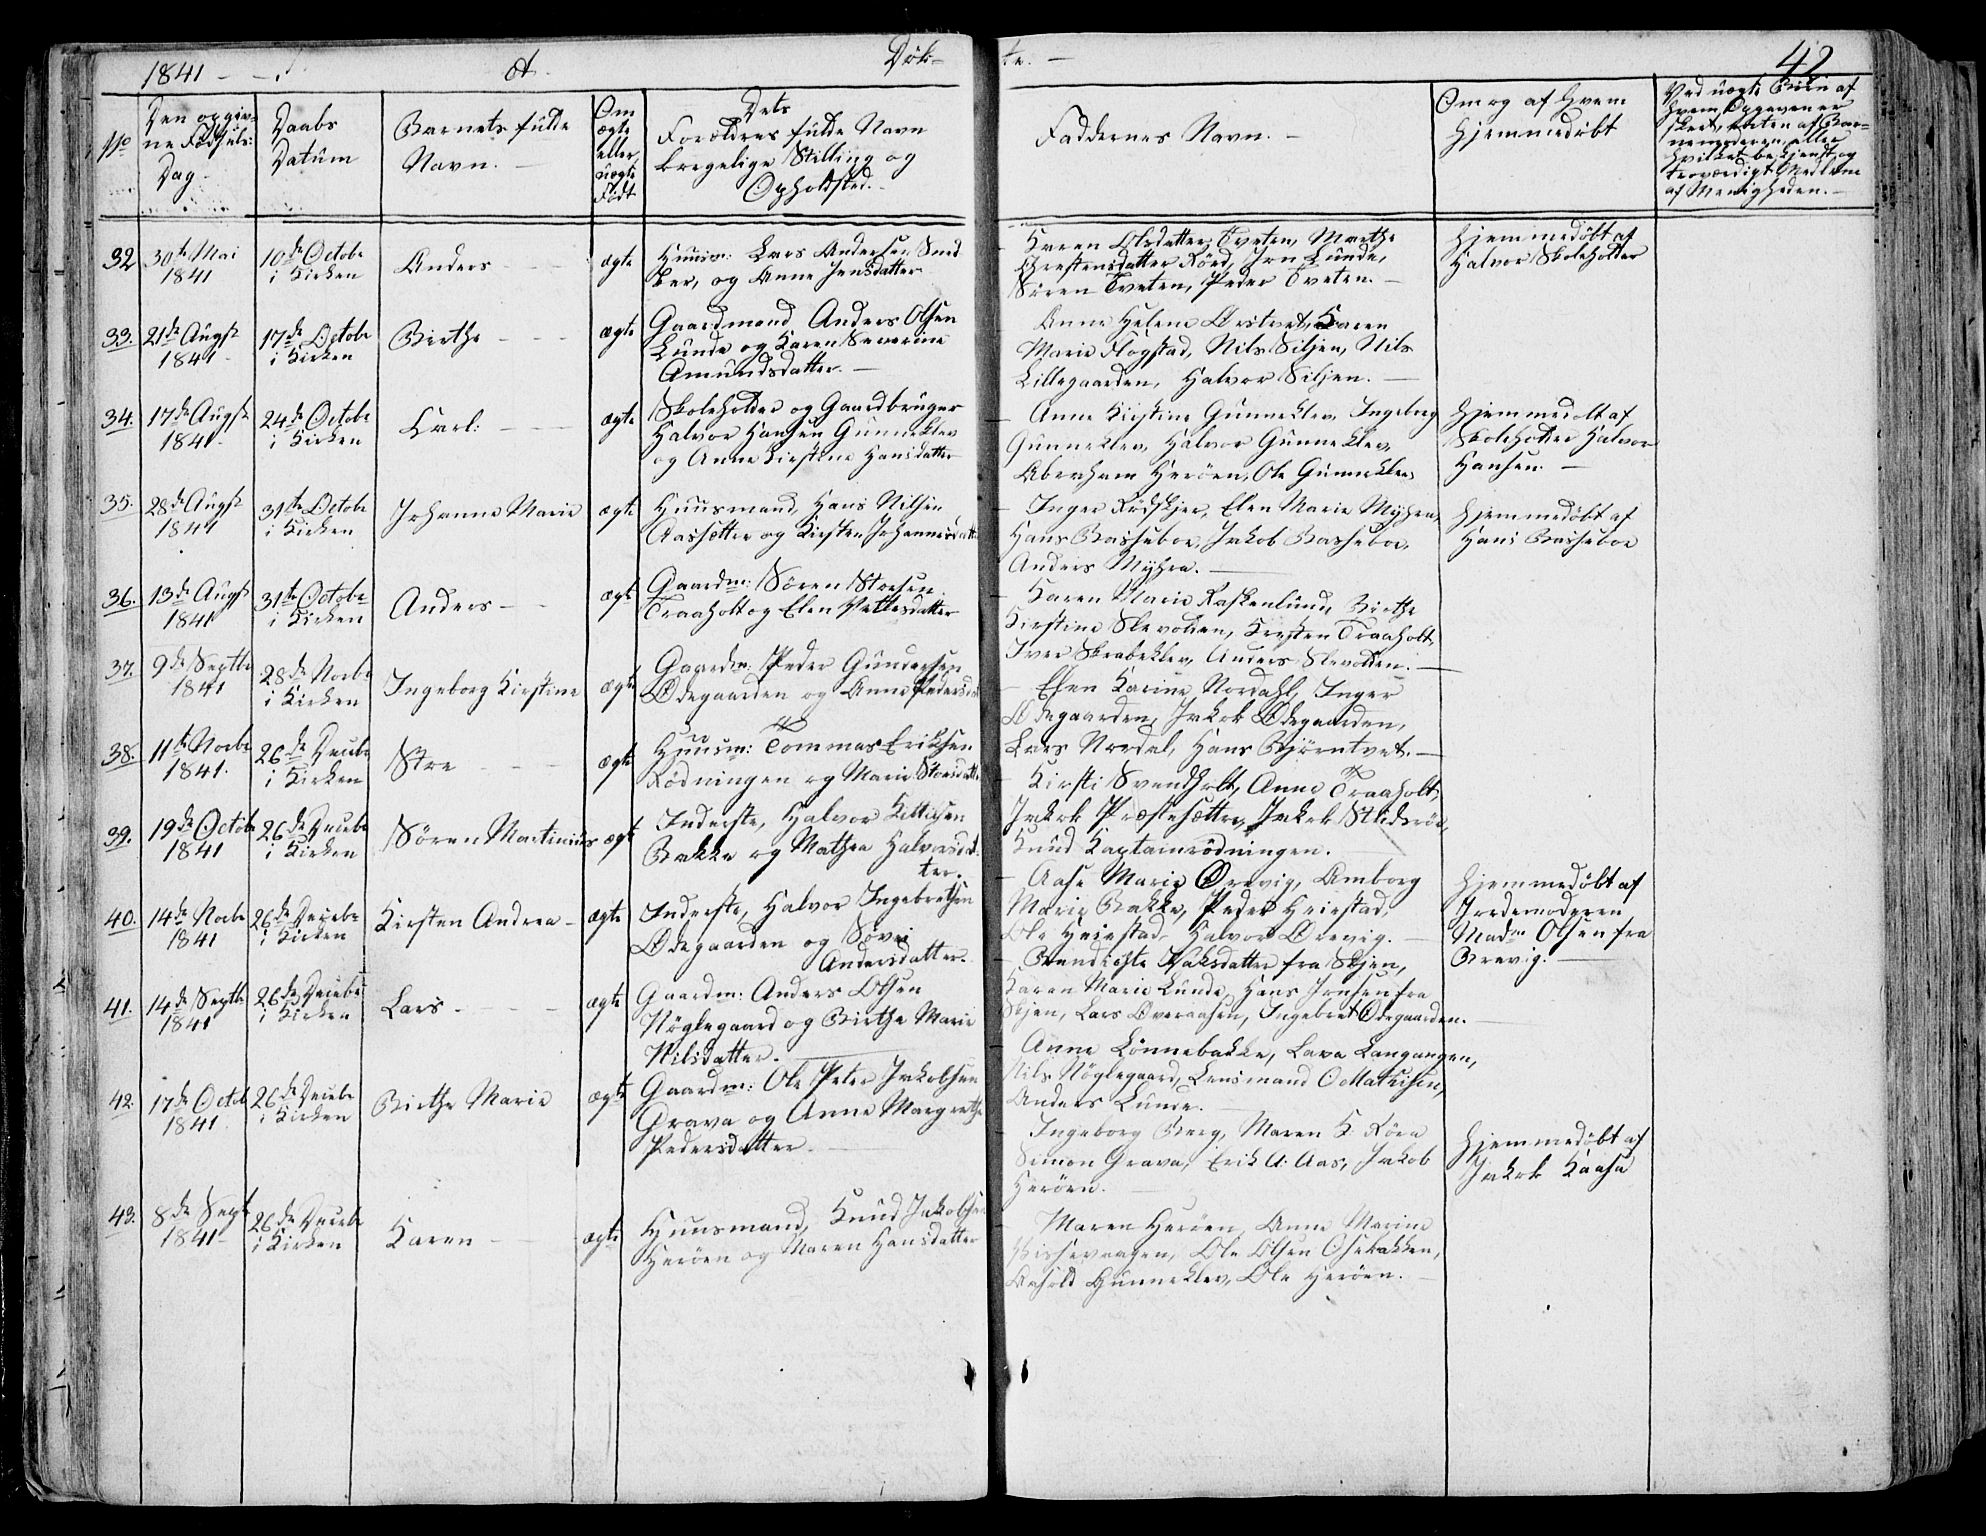 1841 - A. Døb-
te. - 42
No
Den opgiv-
ne Fødsels
Dag.
Daabs
Datum
Barnets fulde
Navn. -
Om
ægte
eller
uægte
Født
Dets
Forældres fulde Navn
borgelige Stilling og
Opholdsted. -
Faddernes Navn. -
Om og af Hvem
hjemmedøbt
Ved uægte Børn af
hvem Opgaven er
skeet, enten af Bar-
nemoderen eller
hvilket bekjendt og
troværdigt Medlem
af Menigheden. -
32 30te Mai
1841
10de Octobr
i Kirken
Anders
ægte
Huusm: Lars Andersen
og Anne Jensdatter
Karen Olsdatter Tveten, Marthe
Chrestensdatter Rörd, Jon Lunde,
Søren Tveten, Peder Tveten. -
Hjemmedøbt af
Halvor Skoleholder
33. 21de Augst
1841 -
17de Octobr
i Kirken
Birthe
ægte
Gaardmand Anders Olsen
Lunde og Karen Severine
Amundsdatter. -
Anne Helene Ørstvet, Karen
Marie Flogstad, Nils Siljen, Nils
Lillegaarden, Halvor Siljen. -
34. 17de Augst
1841 -
24de Octobr
i Kirken
Carl:
ægte
Skoleholder og Gaardbruger
Halvor Hansen Gunneklev
og Anne Kirstine Hansdatter
Anne Kirstine Gunneklev, Ingebrg
Gunneklev, Halvor Gunneklev,
Abraham Herøen, Ole Gunneklev
Hjemmedøbt af
Skoleholder Halvor
Hansen. -
35. 28de Augst
1841
31te Octobr
i Kirken
Johanne Marie
ægte
Huusmand, Hans Nilsen
Aasætter og Kirsten Johannesdatter
Inger Rødskjer, Elen Marie Myhra,
Hans Basseboe, Jakob Basseboe,
Anders Myhra. -
Hjemmedøbt af
Hans Basseboe
36. 13de Augst
1841
31te Octobr
i Kirken
Anders -
ægte
Gaardm: Søren Storsen
Traaholt og Elen Vettesdatter
Karen Marie Raskenlund, Birthe
Kirstine Slevolden, Kirsten Traaholt,
Iver Skrabeklev, Anders Slevolden. -
37. 9de Septbr
1841
28de Novbr
i Kirken
Ingeborg Kirstine
ægte
Gaardm: Peder Gundersen
Ødegaarden og Anne Pedersdat
Elen Karine Nordahl, Inger
Ødegaarden, Jakob Ødegaarden,
Lars Nordal, Hans Bjørntvet. -
38. 11te Novbr
1841.
26de Decebr
i Kirken
Stre
ægte
Huusm: Tommas Eriksen
Rødningen og Marie Storsdatter
Kirsti Svendholt, Anne Traaholt,
Jakob Præstesætter, Jakob
Knud Kaptainrödningen.
39. 19de Octobr
1841
26de Decebr
i Kirken
Søren Martinius
ægt
Inderste, Halvor Kittilsen
Bakke og Mathea Halvorsdat-
ter.
Aase Marie Ørevig, Amborg
Marie Bakke, Peder Heiestad,
Ole Heiestad, Halvor Ørevig. -
40. 14de Novbr
1841
26de Decebr
i Kirken
Kirsten Andrea -
ægte
Inderste, Halvor Ingebretsen
Ødegaarden og
Andersdatter.
Bendichte Isaksdatter fra Skjen,
Karen Marie Lunde, Hans Jensen fra
Skjen, Lars Øveraasen, Ingebret Ødegaarden.
Hjemmedøbt af
Jordemoderen
Madm Olsen fra
Brevig. -
41. 14de Septbr
1841
26de Decebr
i Kirken
Lars -
ægte
Gaardm: Anders Olsen
Nøglegaard og Birthe Marie
Nilsdatter. -
Anne Lønnebakke, Lava Langangen,
Nils Nøglegaard, Lensmand O. Mathisen,
Anders Lunde.
42. 17de Octob
1841
26de Decebr
i Kirken
Birthe Marie
ægte
Gaardm: Ole Peter Jakobsen
Grava og Anne Margrethe
Pedersdatter. -
Ingeborg Berg, Maren K. Röra
Simon Grava, Erik A: Aas, Jakob
Herøen. -
Hjemmedøbt af
Jakob Kaasa
43. 8de Septr
1841 -
26de Decebr
i Kirken
Karen -
ægte
Huusmand, Knud Jakobsen
Herøen og Maren Hansdatter
Maren Herøen, Anne Marine
Ole Olsen Osebakken,
Gunneklev, Ole Herøen. -